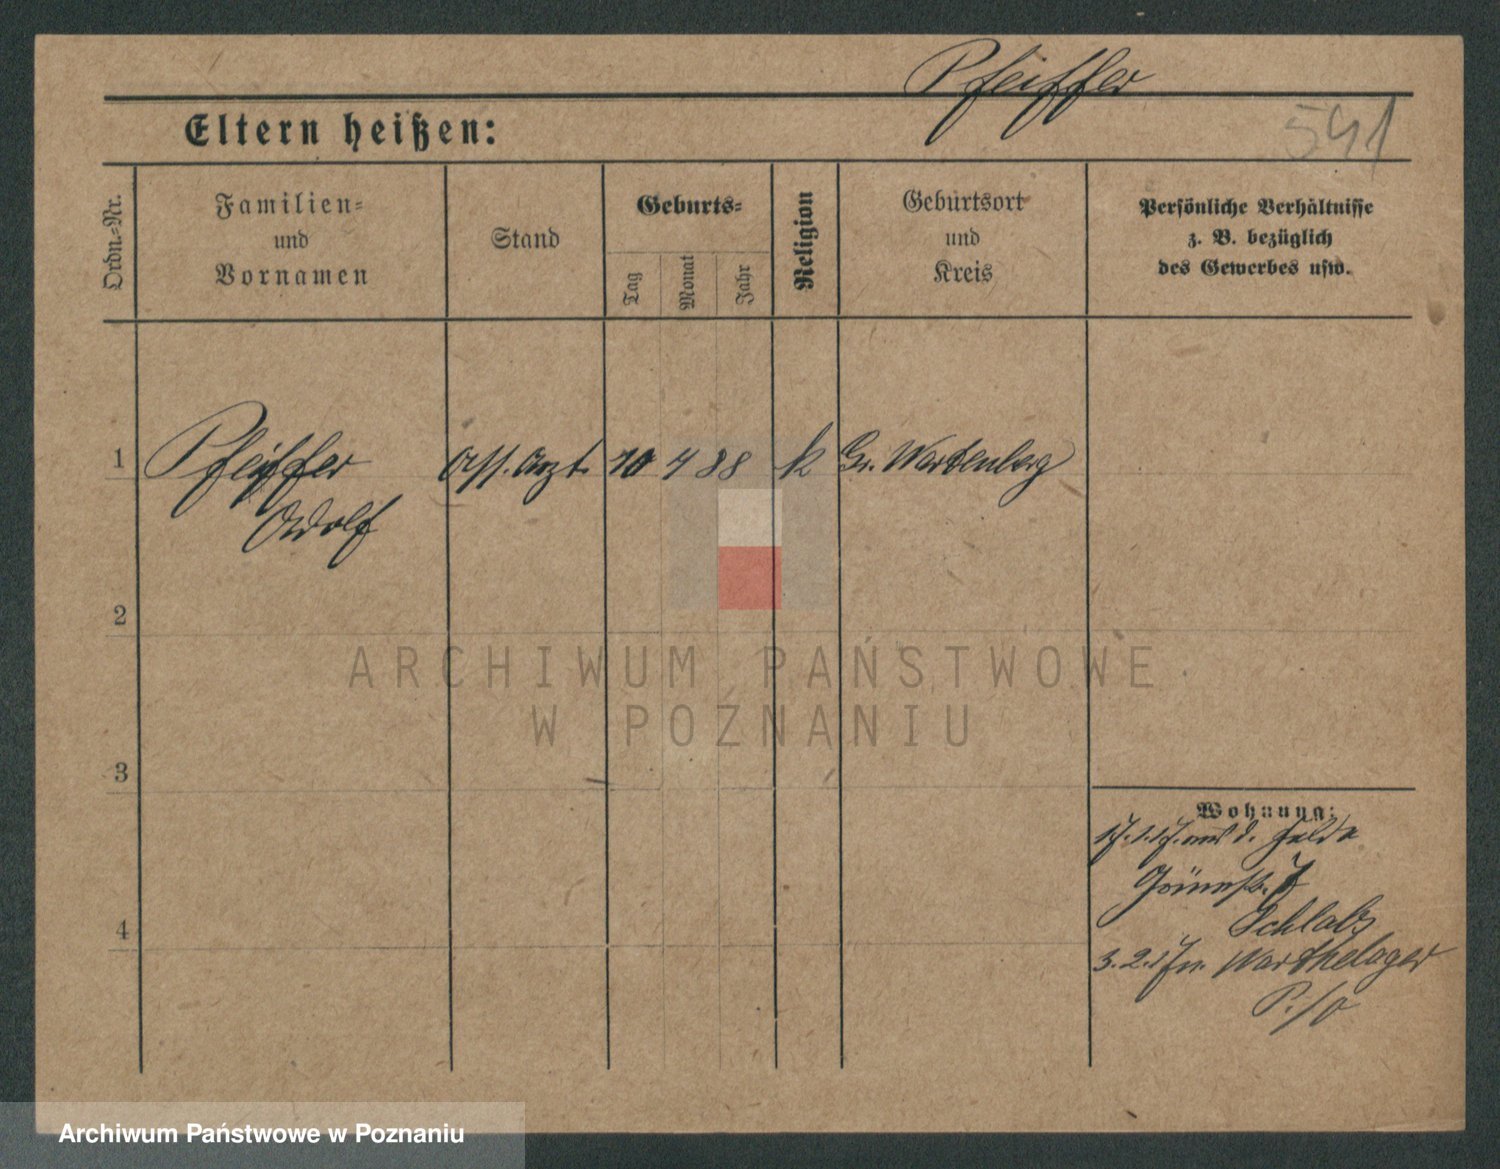 Pfeiffer
Eltern heißen:
541
Ordn.-Nr.
Familien-
und
Vornamen
Stand
Geburts-
Tag
Monat
Jahr
Religion
Geburtsort
und
Kreis
Persönliche Verhältnisse
z. B. bezüglich
des Gewerbes usw.
1
Pfeiffer
Adolf
Ass. Arzt.
10
4
88
k
Gr. Wartenberg
2
3
4
Wohnung:
aus d. Felde
Schlabs
3.2.17 n. Warthelager
ARCHIWUM PAŃSTWOWE
W POZNANIU
Archiwum Państwowe w Poznaniu